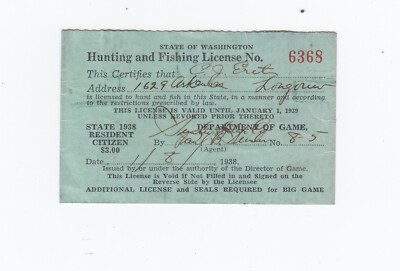 STATE OF WASHINGTON
Hunting and Fishing License No. 6368
This Certifies that E. J.
Address 1629 Arkansas Longview
is licensed to hunt and fish in this State, in a manner and according
to the restrictions prescribed by law.
THIS LICENSE IS VALID UNTIL JANUARY 1, 1939
UNLESS REVOKED PRIOR THERETO
STATE 1938
RESIDENT
CITIZEN
$3.00
DEPARTMENT OF GAME,
By No. 85
(Agent)
Date 1/8/ 1938.
Issued by or under the authority of the Director of Game.
This License is Void if Not Filled in and Signed on the
Reverse Side by the Licensee
ADDITIONAL LICENSE and SEALS REQUIRED for BIG GAME